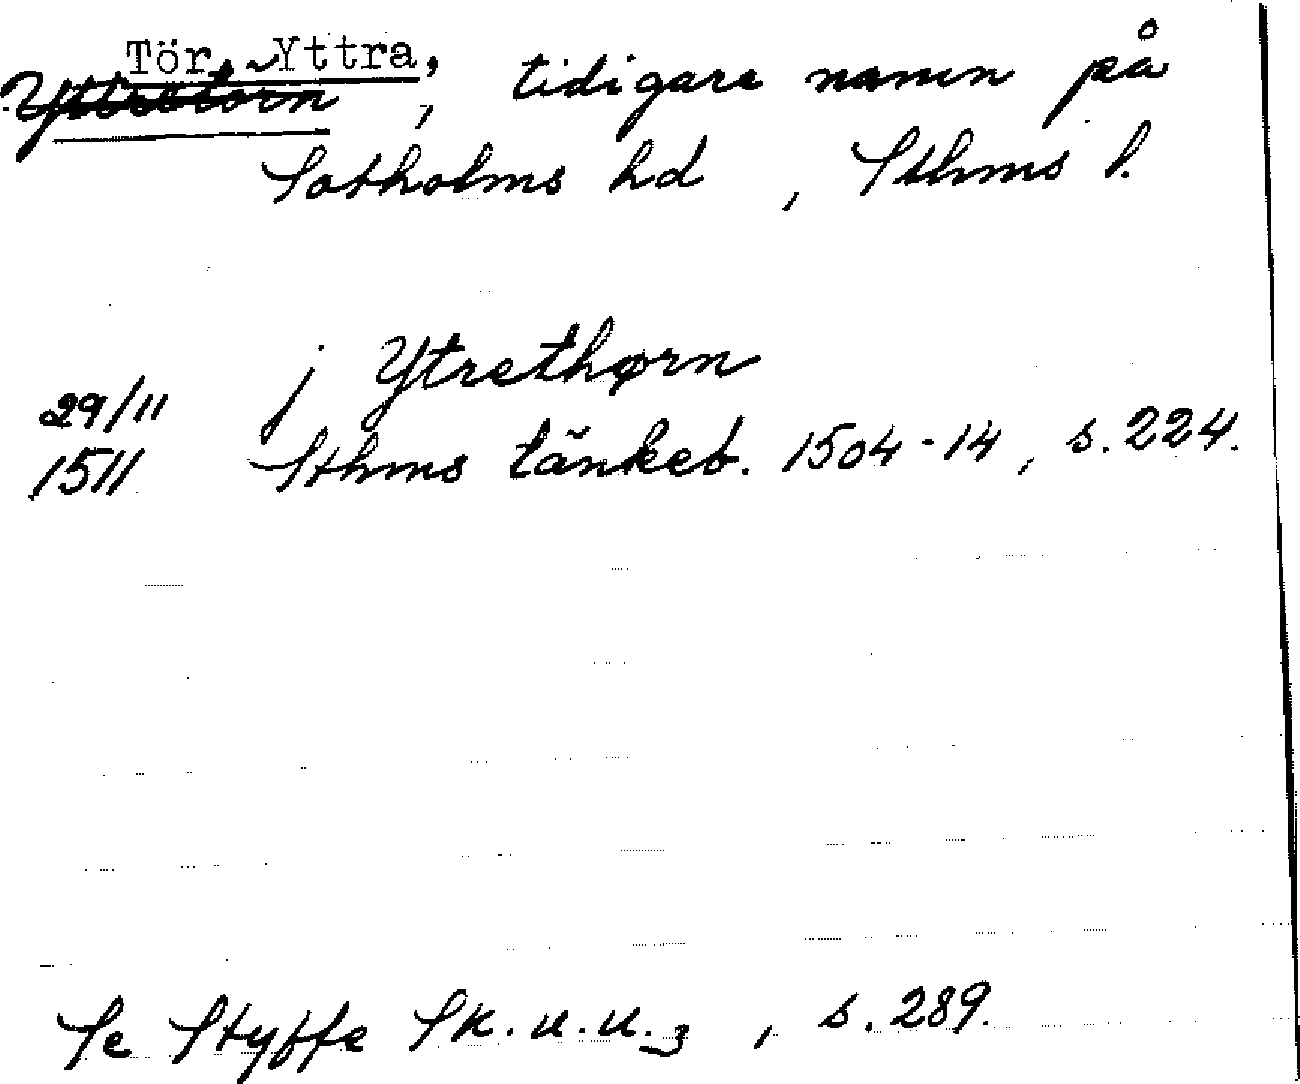 Tör, ~Yttra,
Yttretörn, tidigare namn på
Sotholms hd, Sthms l.
j Ytrethørn
29/11
1511 Sthms tänkeb. 1504-14, s. 224.
Se Styffe Sk.u.u.3, s. 289.